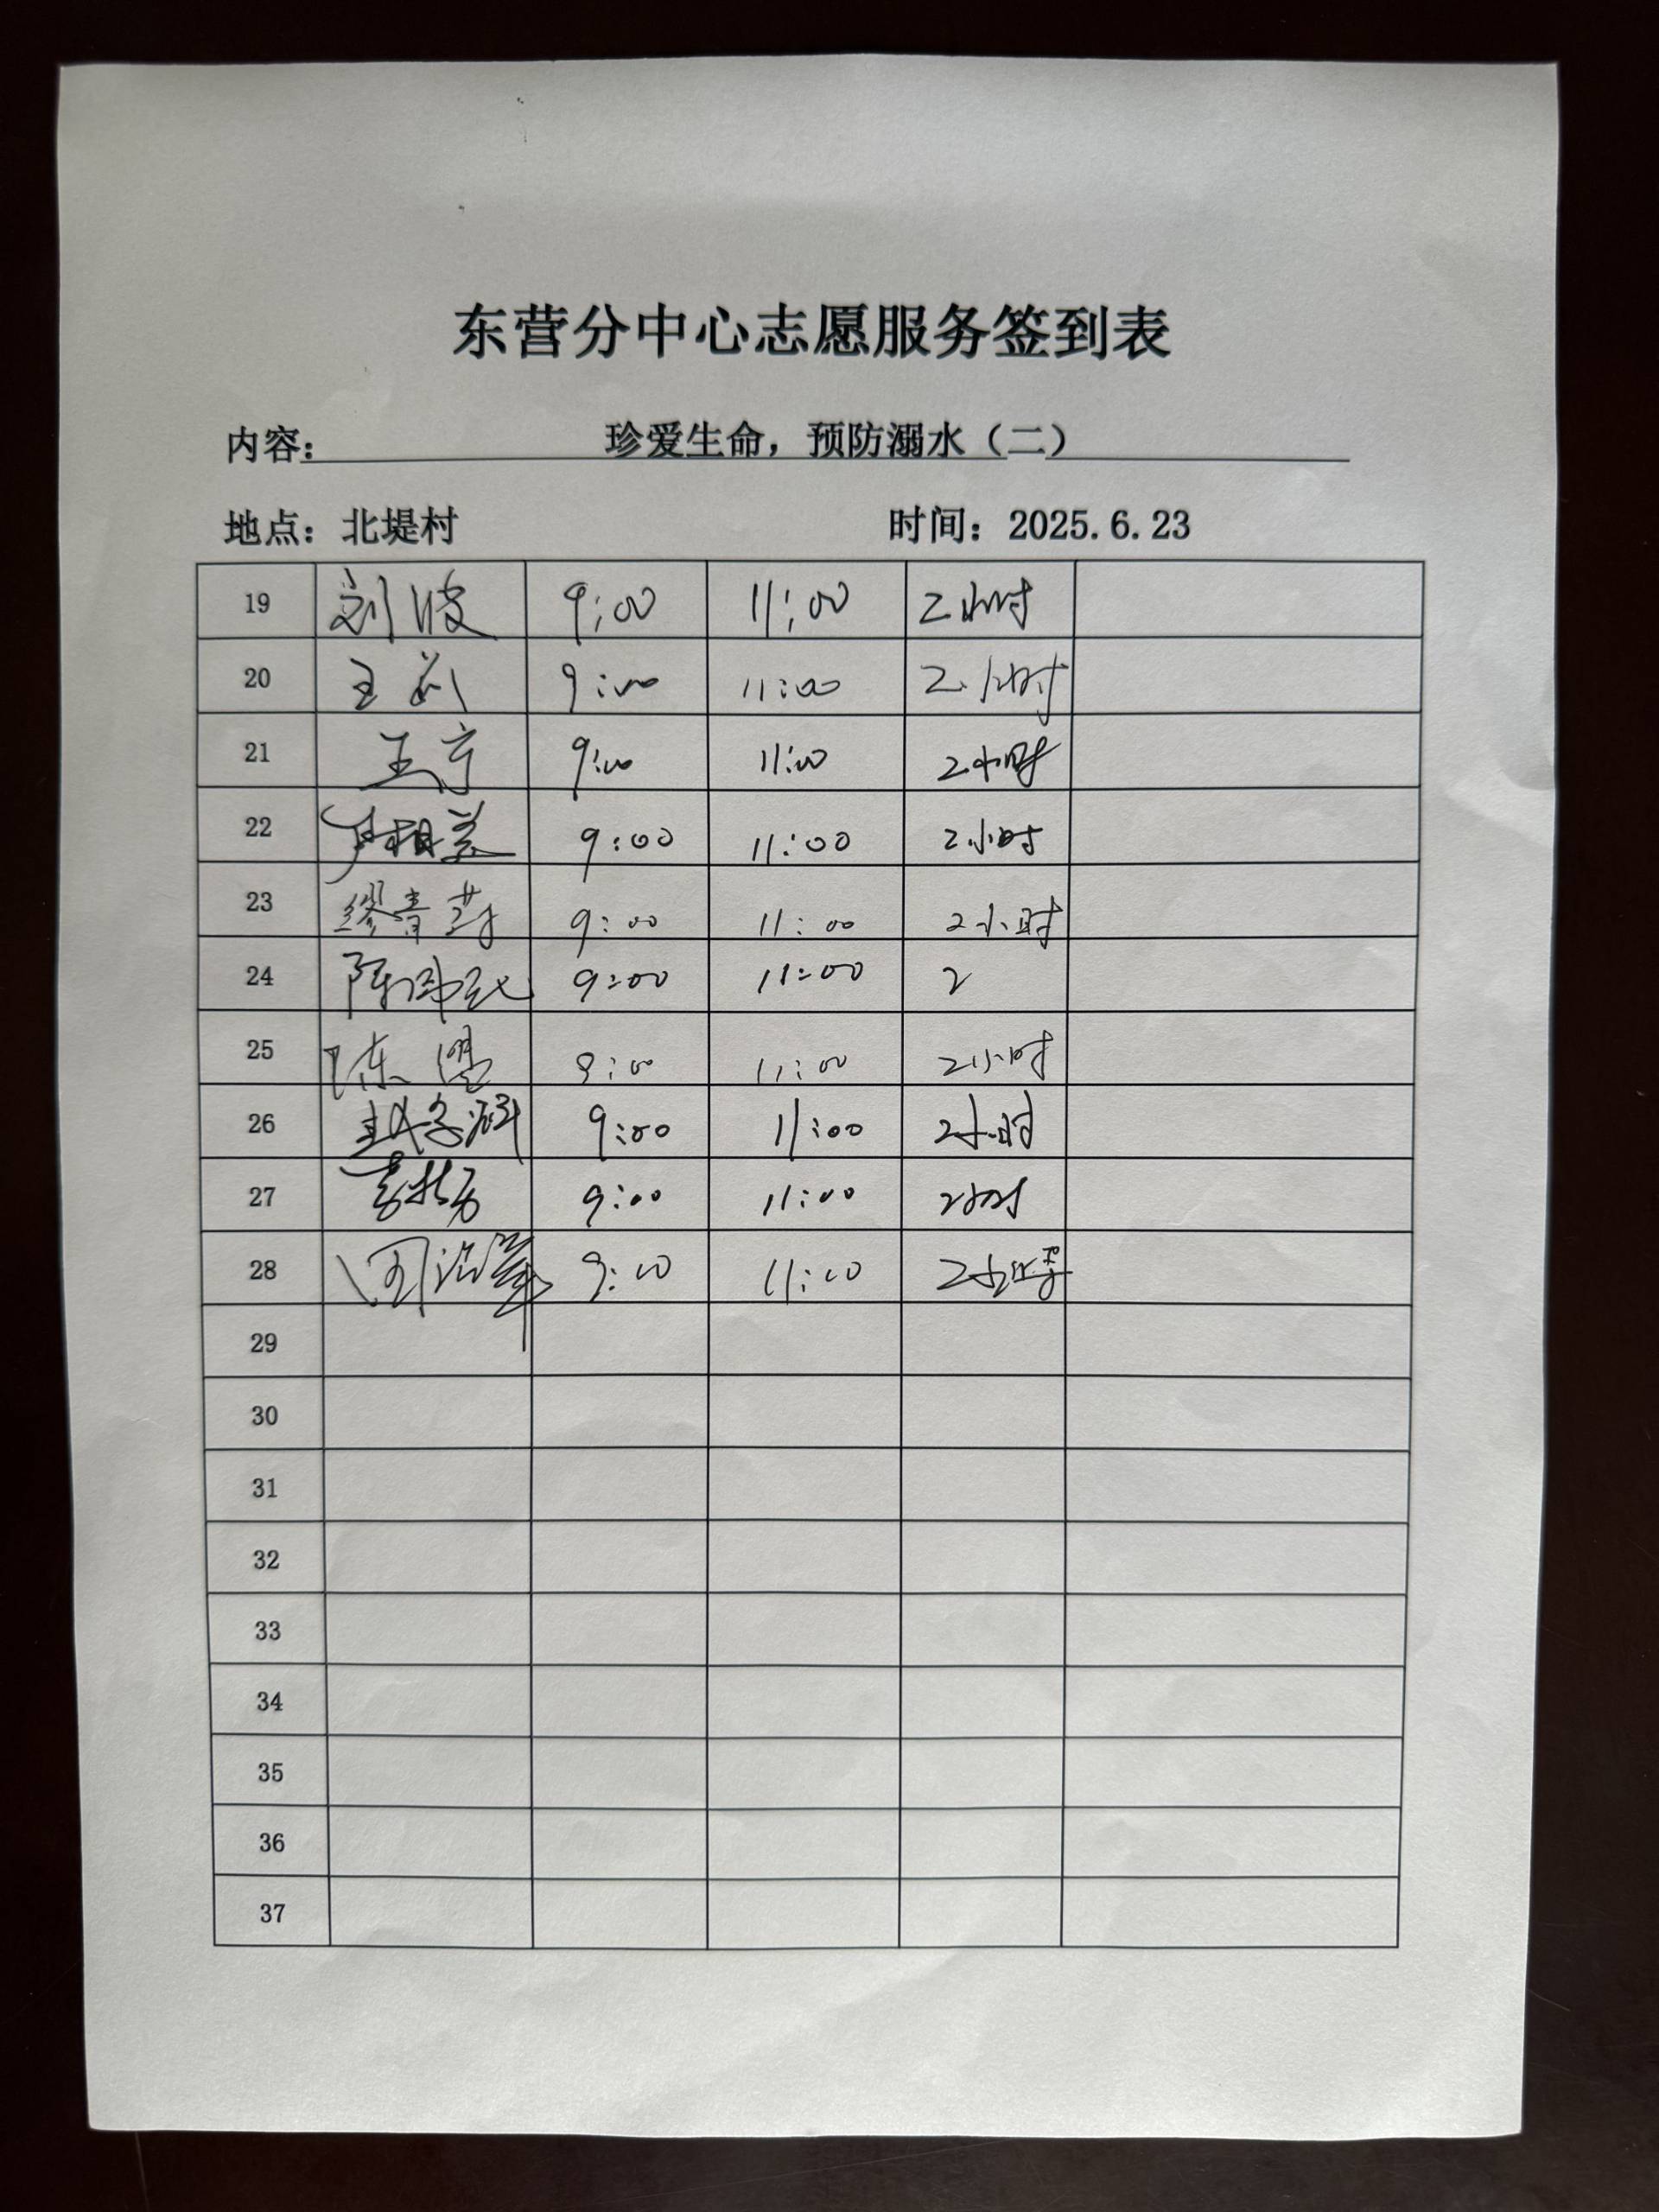 东营分中心志愿服务签到表
内容： 珍爱生命，预防溺水（二）
地点：北堤村 时间：2025.6.23
19 刘波 9:00 11:00 2小时
20 王 9:00 11:00 2小时
21 王宁 9:00 11:00 2小时
22 9:00 11:00 2小时
23 缪青 9:00 11:00 2小时
24 陈 9:00 11:00 2
25 陈 9:00 11:00 2小时
26 9:00 11:00 2小时
27 9:00 11:00 2小时
28 9:00 11:00 2小时
29
30
31
32
33
34
35
36
37